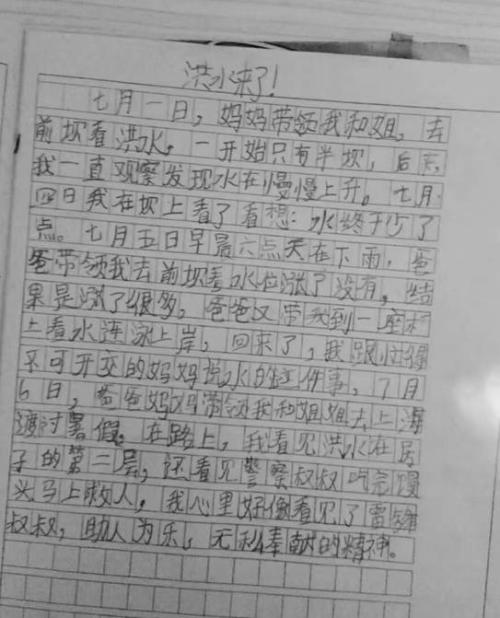 洪水来了!
七月一日，妈妈带领我和姐，去
前坝看洪水，一开始只有半坝，后来，
我一直观察发现水在慢慢上升。七月
四日我在坝上看了看想：水终于少了
点。七月五日早晨六点天在下雨，爸
爸带领我去前坝看水位涨了没有，结
果是涨了很多。爸爸又带我到一座桥
上看水连泳上岸，回来了，我跟忙得
不可开交的妈妈说水的这件事，7月
6日，爸爸妈妈带领我和姐姐去上海
渡过暑假。在路上，我看见洪水在房
子的第二层，还看见警察叔叔吃完馒
头马上救人，我心里好像看见了雷锋
叔叔，助人为乐，无私奉献的精神。